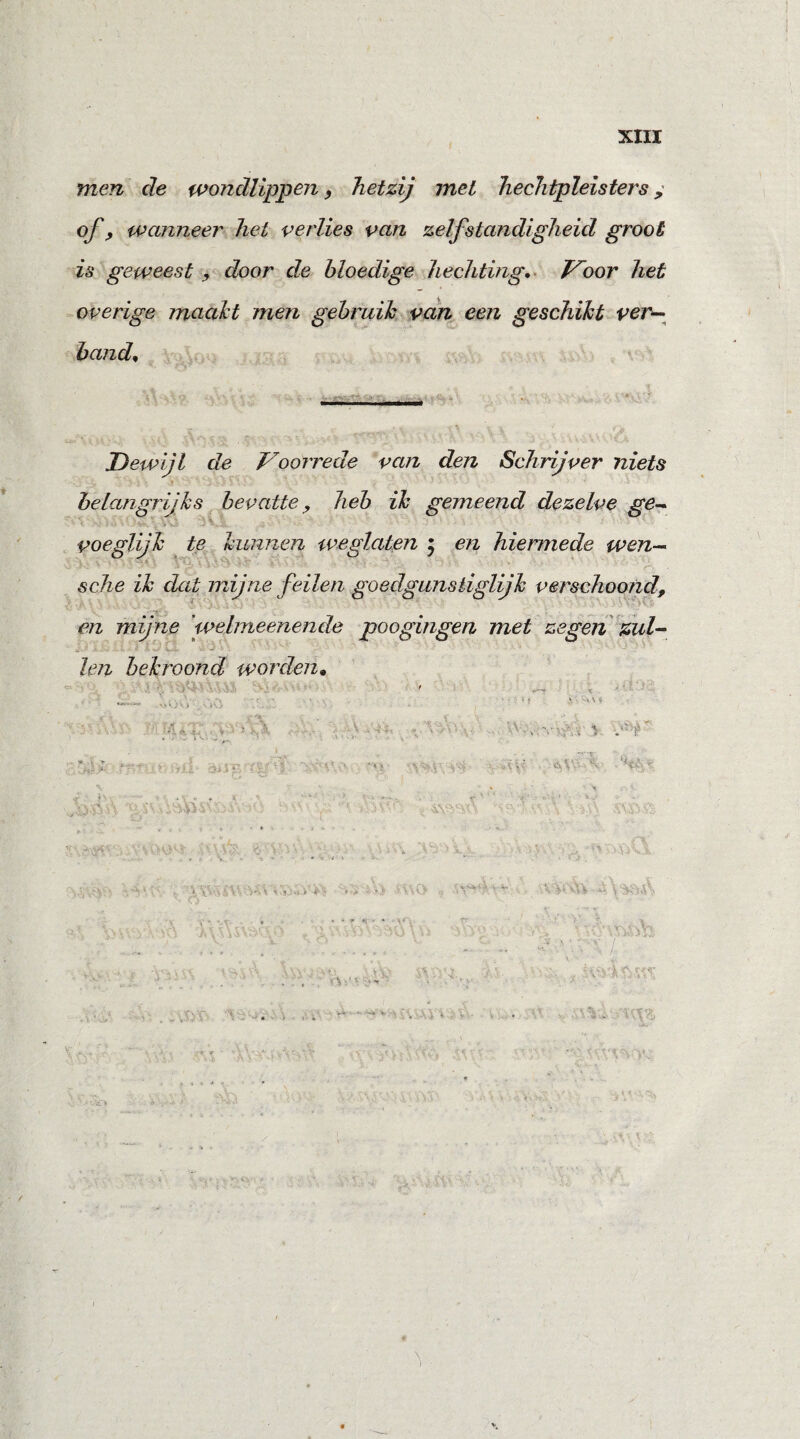 XIII
men de wondlippen, hetzij met hechtpleisters,
of, wanneer het verlies van zelfstandigheid groot
is geweest, door de bloedige hechting. Voor het
overige maakt men gebruik van een geschikt ver-
band.
Dewijl de Voorrede van den Schrijver niets
belangrijks bevatte, heb ik gemeend dezelve ge-
voeglijk te kunnen weglaten; en hiermede wen-
sche ik dat mijne feilen goedgunstiglijk verschoond,
en mijne welmeenende poogingen met zegen zul-
len bekroond worden.